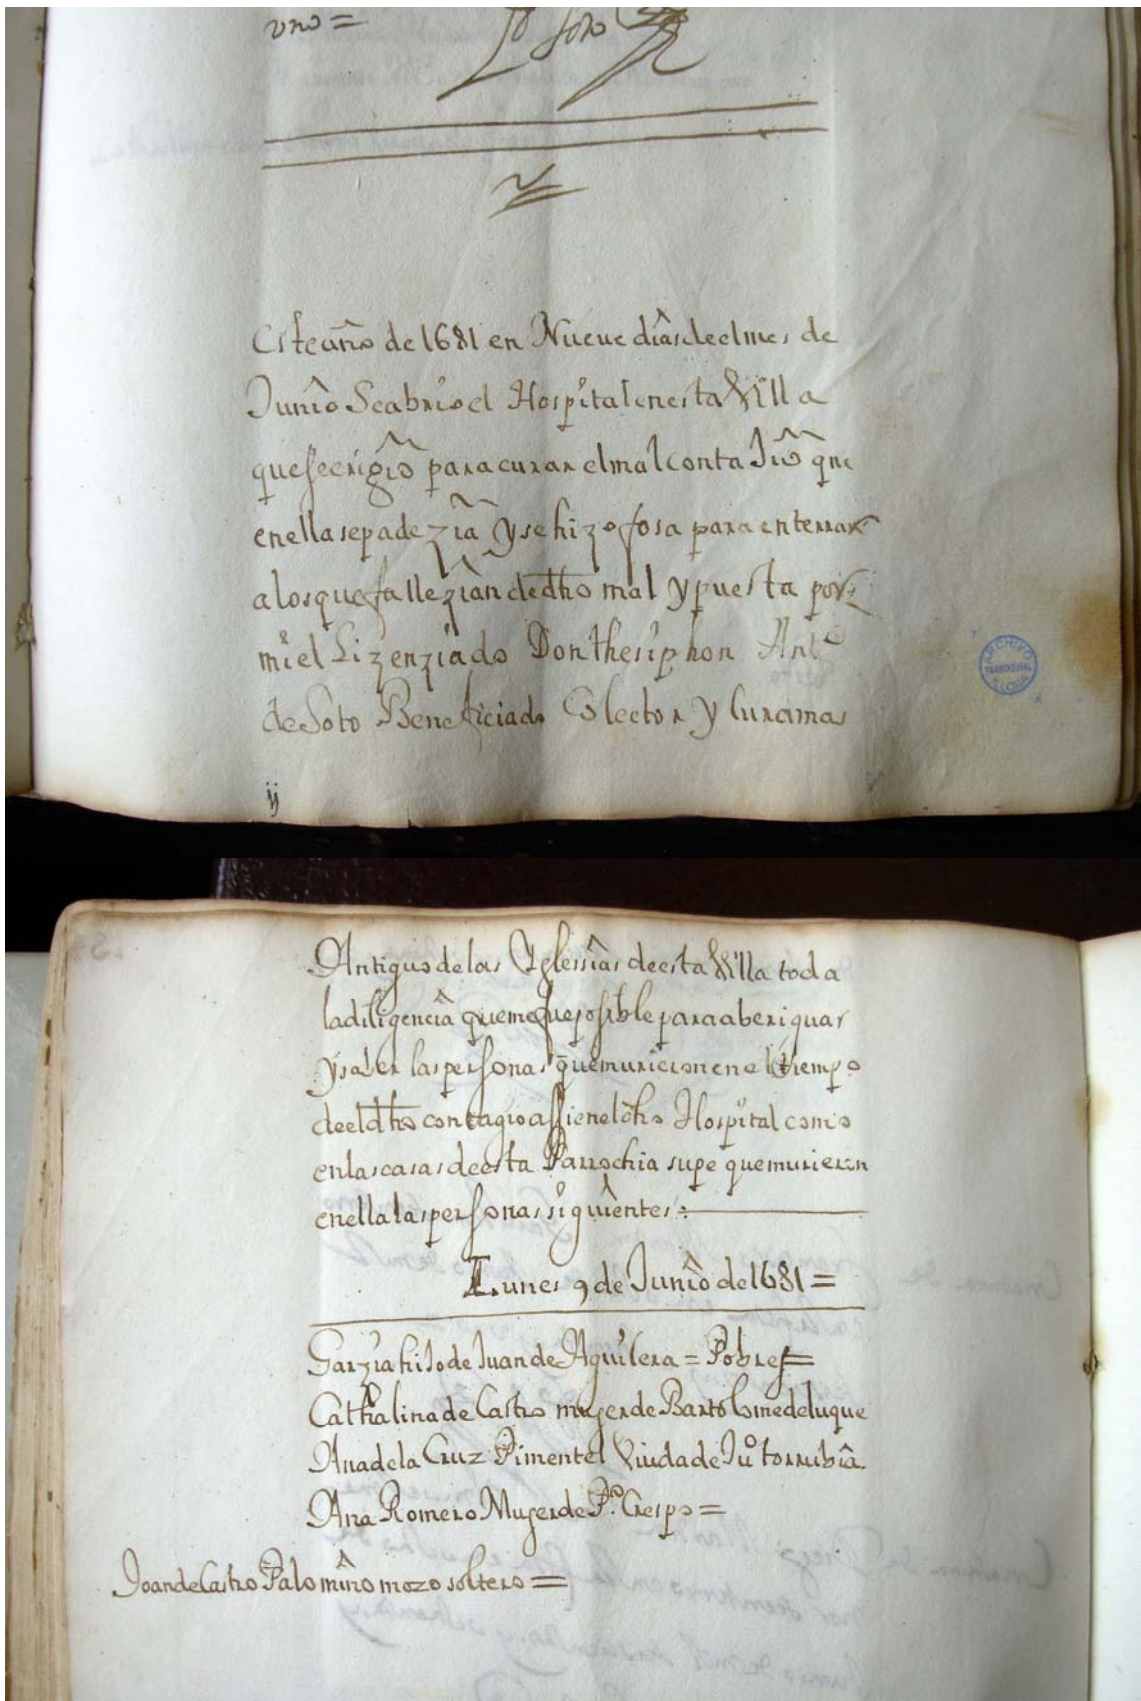 uno =
Soto
Este año de 1681 en Nueve dias de el mes de
Junio Se abrio el Hospital en esta Villa
que se erigio para curar el mal contaJio que
en ella se padezia y se hizo fosa para enterrar
a los que fallezian de dho mal y puesta por
mi el Lizenziado Don thesiphon Antº
de Soto Beneficiado Colector y Cura mas
ARCHIVO PARROQUIAL ALORA
Antiguo de las Yglessias de esta Villa toda
la diligencia que me fue posible para aberiguar
y saber las personas que murieron en el tiempo
de el dho contagio assi en el dho Hospital como
en las casas de esta Parrochia supe que murieron
en ella las personas siguientes =
Lunes 9 de Junio de 1681 =
Garzia hiJo de Juan de Aguilera = Pobre =
Cathalina de Castro muger de Bartolome de luque
Ana de la Cruz Pimentel Viuda de Juº torrubia.
Ana Romero Muger de Pº Crespo =
Joan de Castro Palomino mozo soltero =